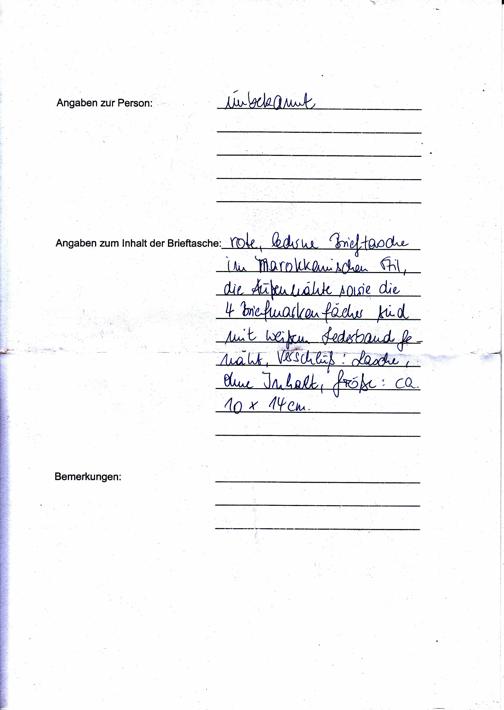 Angaben zur Person: unbekannt
Angaben zum Inhalt der Brieftasche: rote, lederne Brieftasche
im Marokkanischen Stil,
die Außennähte sowie die
4 Briefmarkenfächer sind
mit weißem Lederband ge-
näht, Verschluß: Lasche,
ohne Inhalt, Größe: ca.
10 x 14 cm.
Bemerkungen: